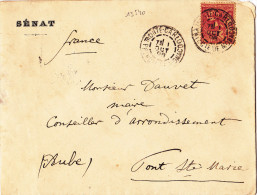 13540
SÉNAT
France
Monsieur Dauvet
maire
Conseiller d'arrondissement
(Aube)
Pont Ste Marie